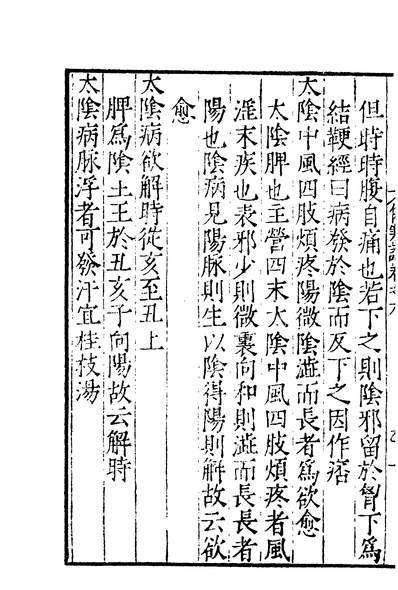 但時時腹自痛也若下之則陰邪留於胷下爲
結鞕經曰病發於陰而反下之因作痞
太陰中風四肢煩疼陽微陰濇而長者爲欲愈
太陰脾也主營四末太陰中風四肢煩疼者風
淫末疾也表邪少則微裏向和則濇而長長者
陽也陰病見陽脉則生以陰得陽則解故云欲
愈
太陰病欲解時從亥至丑上
脾爲陰土王於丑亥子向陽故云解時
太陰病脉浮者可發汗宜桂枝湯